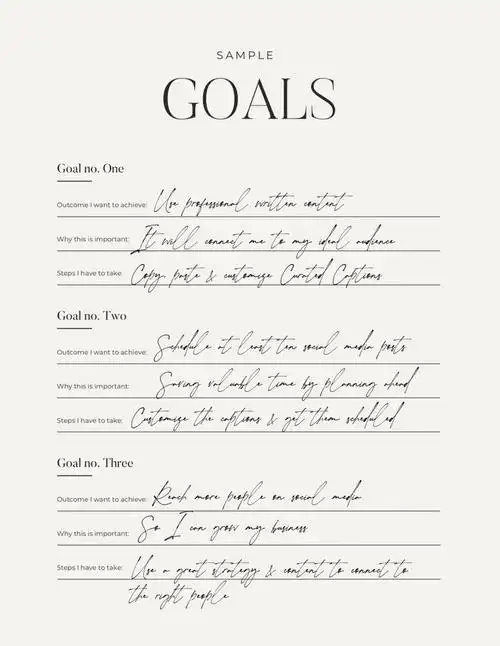 SAMPLE
GOALS
Goal no. One
Outcome I want to achieve: Use professional written content
Why this is important: It will connect me to my ideal audience
Steps I have to take: Copy, paste & customize Curated Captions
Goal no. Two
Outcome I want to achieve: Schedule at least ten social media posts
Why this is important: Saving valuable time by planning ahead
Steps I have to take: Customize the captions & get them scheduled
Goal no. Three
Outcome I want to achieve: Reach more people on social media
Why this is important: So I can grow my business
Steps I have to take: Use a great strategy & content to connect to
the right people